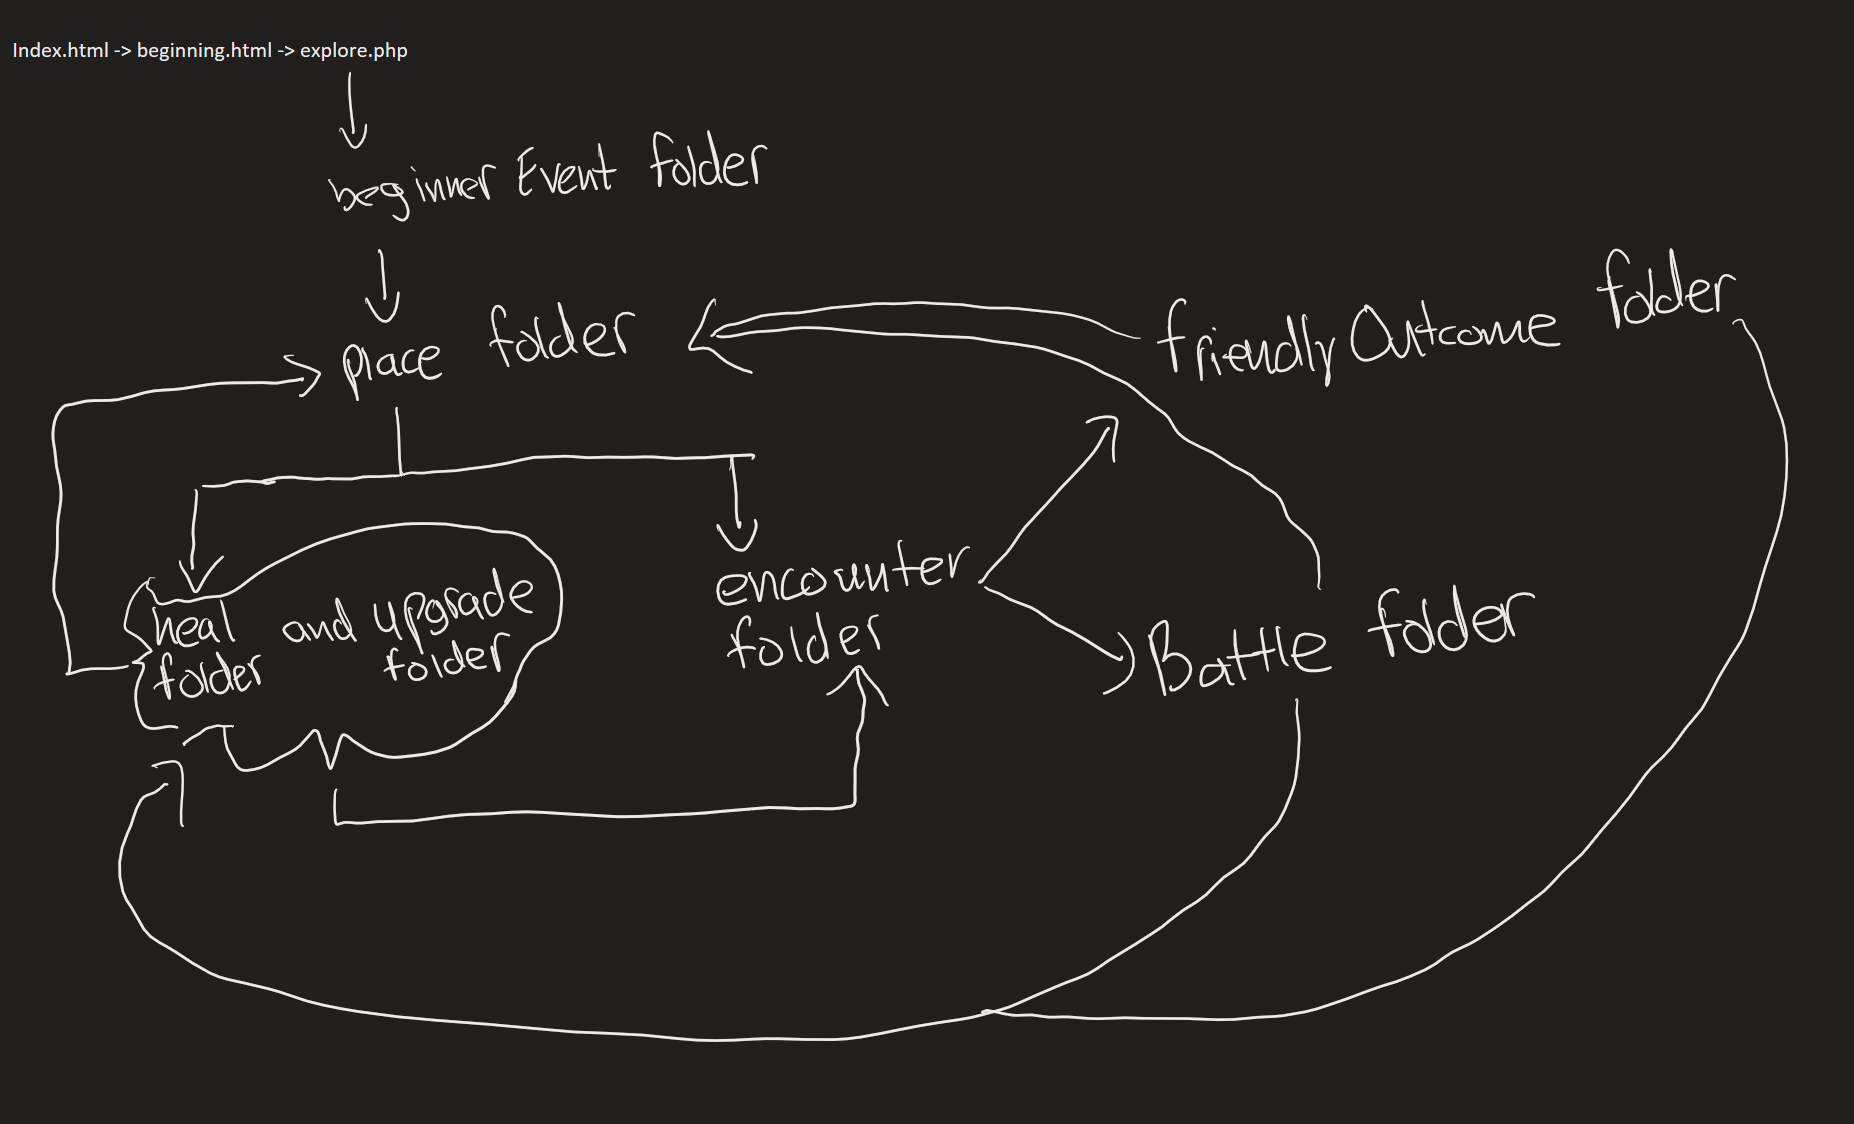 Index.html -> beginning.html -> explore.php
beginner Event folder
place folder
friendly Outcome folder
heal and upgrade
folder folder
encounter
folder
Battle folder